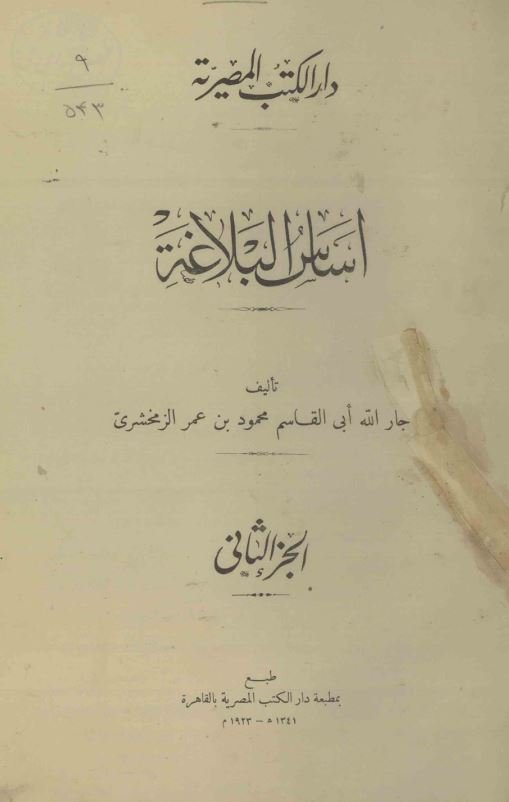 ٩
٥٤٣
دار الكتب المصرية
أساس البلاغة
تأليف
جار الله أبى القاسم محمود بن عمر الزمخشرى
الجزء الثانى
طبع
بمطبعة دار الكتب المصرية بالقاهرة
١٣٤١ ه – ١٩٢٣ م